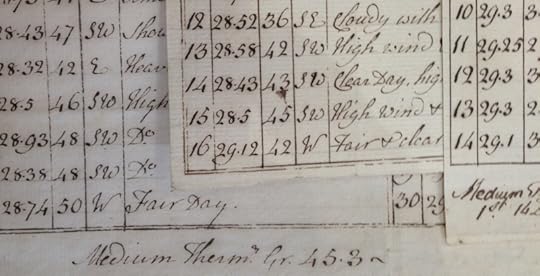 28.43 47 SW
28.32 42 E
28.5 46 SW High
28.93 48 SW Do
28.38 48 SW Do
28.74 50 W Fair Day.
Medium Therm.r Gr. 45.3
12 28.52 36 SE Cloudy with
13 28.58 42 SW High wind
14 28.43 43 SW Clear Day, hig
15 28.5 45 SW High wind &
16 29.12 42 W Fair & clear
30 29
10 29.3
11 29.25 2
12 29.3
13 29.3
14 29.1 3
Medium
1st 14